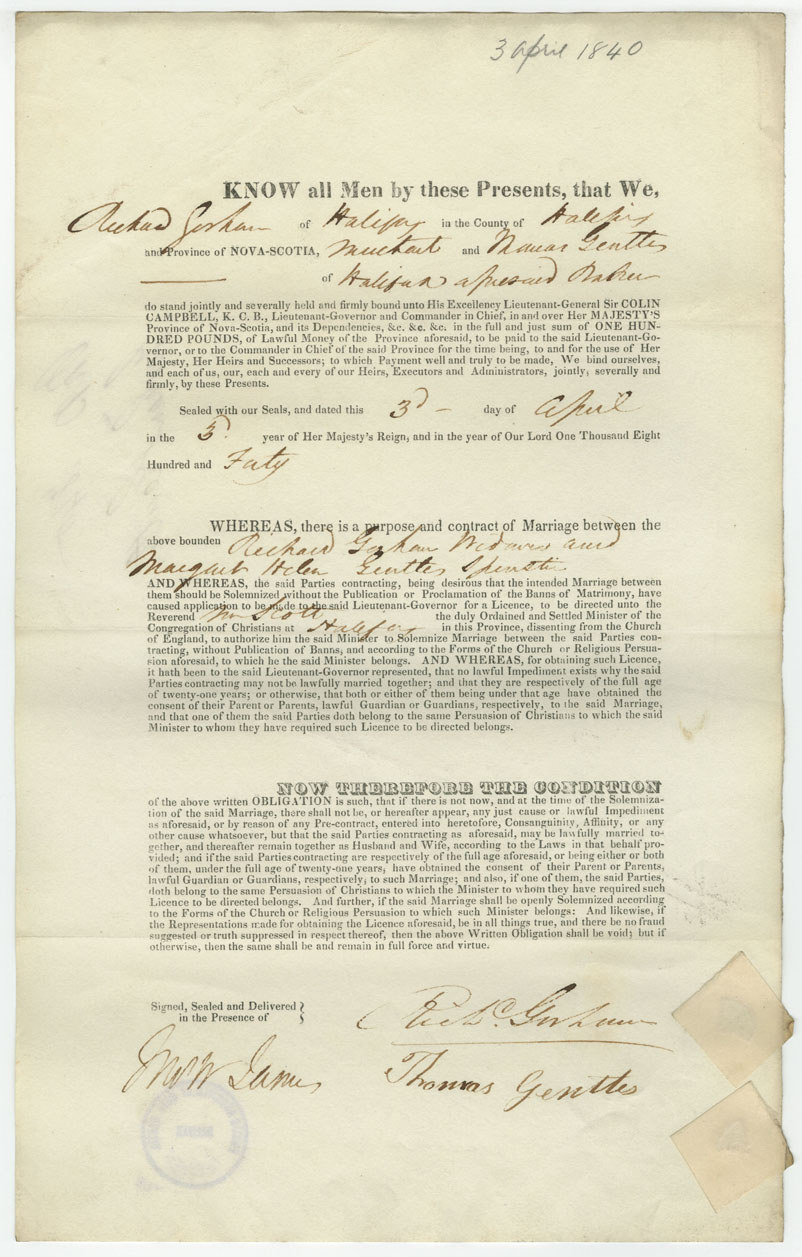 3 April 1840
KNOW all Men by these Presents, that We,
Richard Gorham of Halifax in the County of Halifax
and Province of NOVA-SCOTIA, Merchant and Thomas Gentles
of Halifax aforesaid Baker
do stand jointly and severally held and firmly bound unto His Excellency Lieutenant-General Sir COLIN
CAMPBELL, K. C. B., Lieutenant-Governor and Commander in Chief, in and over Her MAJESTY'S
Province of Nova-Scotia, and its Dependencies, &c. &c. &c. in the full and just sum of ONE HUN-
DRED POUNDS, of Lawful Money of the Province aforesaid, to be paid to the said Lieutenant-Go-
vernor, or to the Commander in Chief of the said Province for the time being, to and for the use of Her
Majesty, Her Heirs and Successors; to which Payment well and truly to be made, We bind ourselves,
and each of us, our, each and every of our Heirs, Executors and Administrators, jointly, severally and
firmly, by these Presents.
Sealed with our Seals, and dated this 3d day of April
in the 3d. year of Her Majesty's Reign, and in the year of Our Lord One Thousand Eight
Hundred and Forty
WHEREAS, there is a purpose and contract of Marriage between the
above bounden Richard Gorham Widower and
Margaret Helen Gentles Spinster
AND WHEREAS, the said Parties contracting, being desirous that the intended Marriage between
them should be Solemnized without the Publication or Proclamation of the Banns of Matrimony, have
caused application to be made to the said Lieutenant-Governor for a Licence, to be directed unto the
Reverend Mr Scott the duly Ordained and Settled Minister of the
Congregation of Christians at Halifax in this Province, dissenting from the Church
of England, to authorize him the said Minister to Solemnize Marriage between the said Parties con-
tracting, without Publication of Banns, and according to the Forms of the Church or Religious Persua-
sion aforesaid, to which he the said Minister belongs. AND WHEREAS, for obtaining such Licence,
it hath been to the said Lieutenant-Governor represented, that no lawful Impediment exists why the said
Parties contracting may not be lawfully married together; and that they are respectively of the full age
of twenty-one years; or otherwise, that both or either of them being under that age have obtained the
consent of their Parent or Parents, lawful Guardian or Guardians, respectively, to the said Marriage,
and that one of them the said Parties doth belong to the same Persuasion of Christians to which the said
Minister to whom they have required such Licence to be directed belongs.
NOW THEREFORE THE CONDITION
of the above written OBLIGATION is such, that if there is not now, and at the time of the Solemniza-
tion of the said Marriage, there shall not be, or hereafter appear, any just cause or lawful Impediment
as aforesaid, or by reason of any Pre-contract, entered into heretofore, Consanguinity, Affinity, or any
other cause whatsoever, but that the said Parties contracting as aforesaid, may be lawfully married to-
gether, and thereafter remain together as Husband and Wife, according to the Laws in that behalf pro-
vided; and if the said Parties contracting are respectively of the full age aforesaid, or being either or both
of them, under the full age of twenty-one years, have obtained the consent of their Parent or Parents,
lawful Guardian or Guardians, respectively, to such Marriage; and also, if one of them, the said Parties,
doth belong to the same Persuasion of Christians to which the Minister to whom they have required such
Licence to be directed belongs. And further, if the said Marriage shall be openly Solemnized according
to the Forms of the Church or Religious Persuasion to which such Minister belongs: And likewise, if
the Representations made for obtaining the Licence aforesaid, be in all things true, and there be no fraud
suggested or truth suppressed in respect thereof, then the above Written Obligation shall be void; but if
otherwise, then the same shall be and remain in full force and virtue.
Signed, Sealed and Delivered
in the Presence of
Richd. Gorham
Thos W James
Thomas Gentles